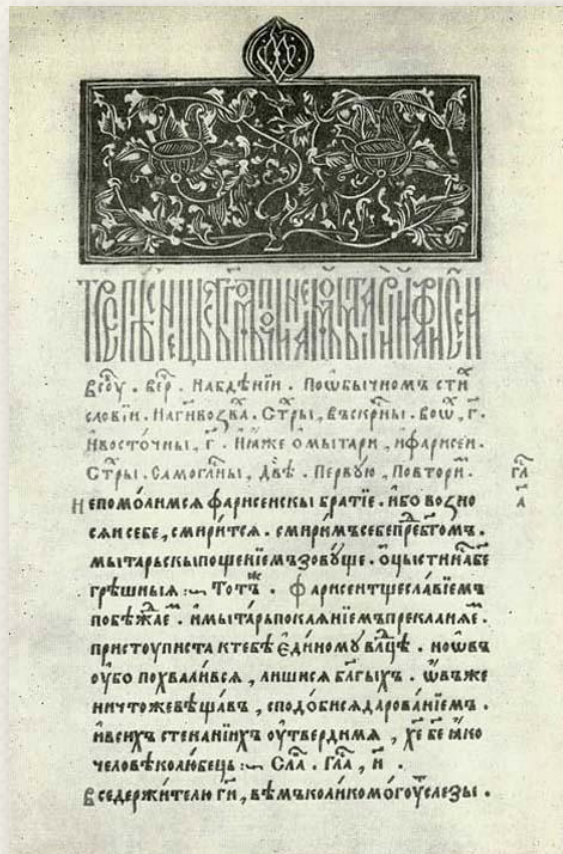 Всѹ҇ . веч҇ . на бдѣнїи . По ѡбычномъ сти҇
словїи . На г҃и возвѧ . Ст҇ры , въскр҇ны . воѡ҇ , г҃ .
и҆ восто́чны , г҃ . и҆ны́ѧже ѡ҆ мытари , и҆ фарисеи .
Ст҇ры . Самогл҇ны , двѣ . Первую , повтори҇ .
гл҇ а҃
Не помо́лимсѧ фарисеискы братїе . и҆бо возно
сѧи себе , смири́тсѧ . смири́мъ себе пре҇ бг҃омъ .
мытарьскы пощенїемъ зовꙋще . ѡ҆цысти нꙑ҇ бж҃е
грѣшныѧ :~ Тот҇ . Фарисеи тщесла́вїемъ
побѣжа́е҇ . и҆ мыта́рь покаѧ́нїемъ прекланѧ́е҇ .
пристоуписта к тебѣ є҆ди́ному влⷣцѣ . но ѡ҆въ
оу҆бо похвали́всѧ , лишисѧ бл҃гыхъ . ѡ҆въ же
ничтоже вѣща́въ , сподо́бисѧ дарова́нїемъ .
и҆ в си́хъ стена́нїихъ оу҆тверди мѧ , хе҇ бж҃е ꙗ҆ко
человѣколю́бець :~ Сла҇ . Гла҇ , и҃ .
Вседержи́телю гⷭи , вѣмъ коли́ко мо́гоу҇ слезы .